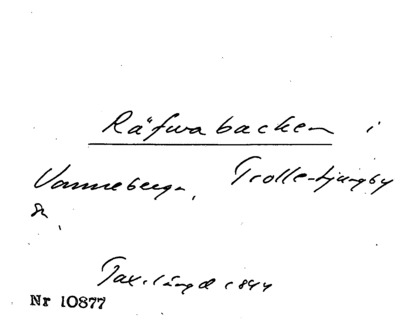 Räfwabacken i
Vanneberga, Trolle-Ljungby
sn.
Tax.längd 1844
Nr 10877